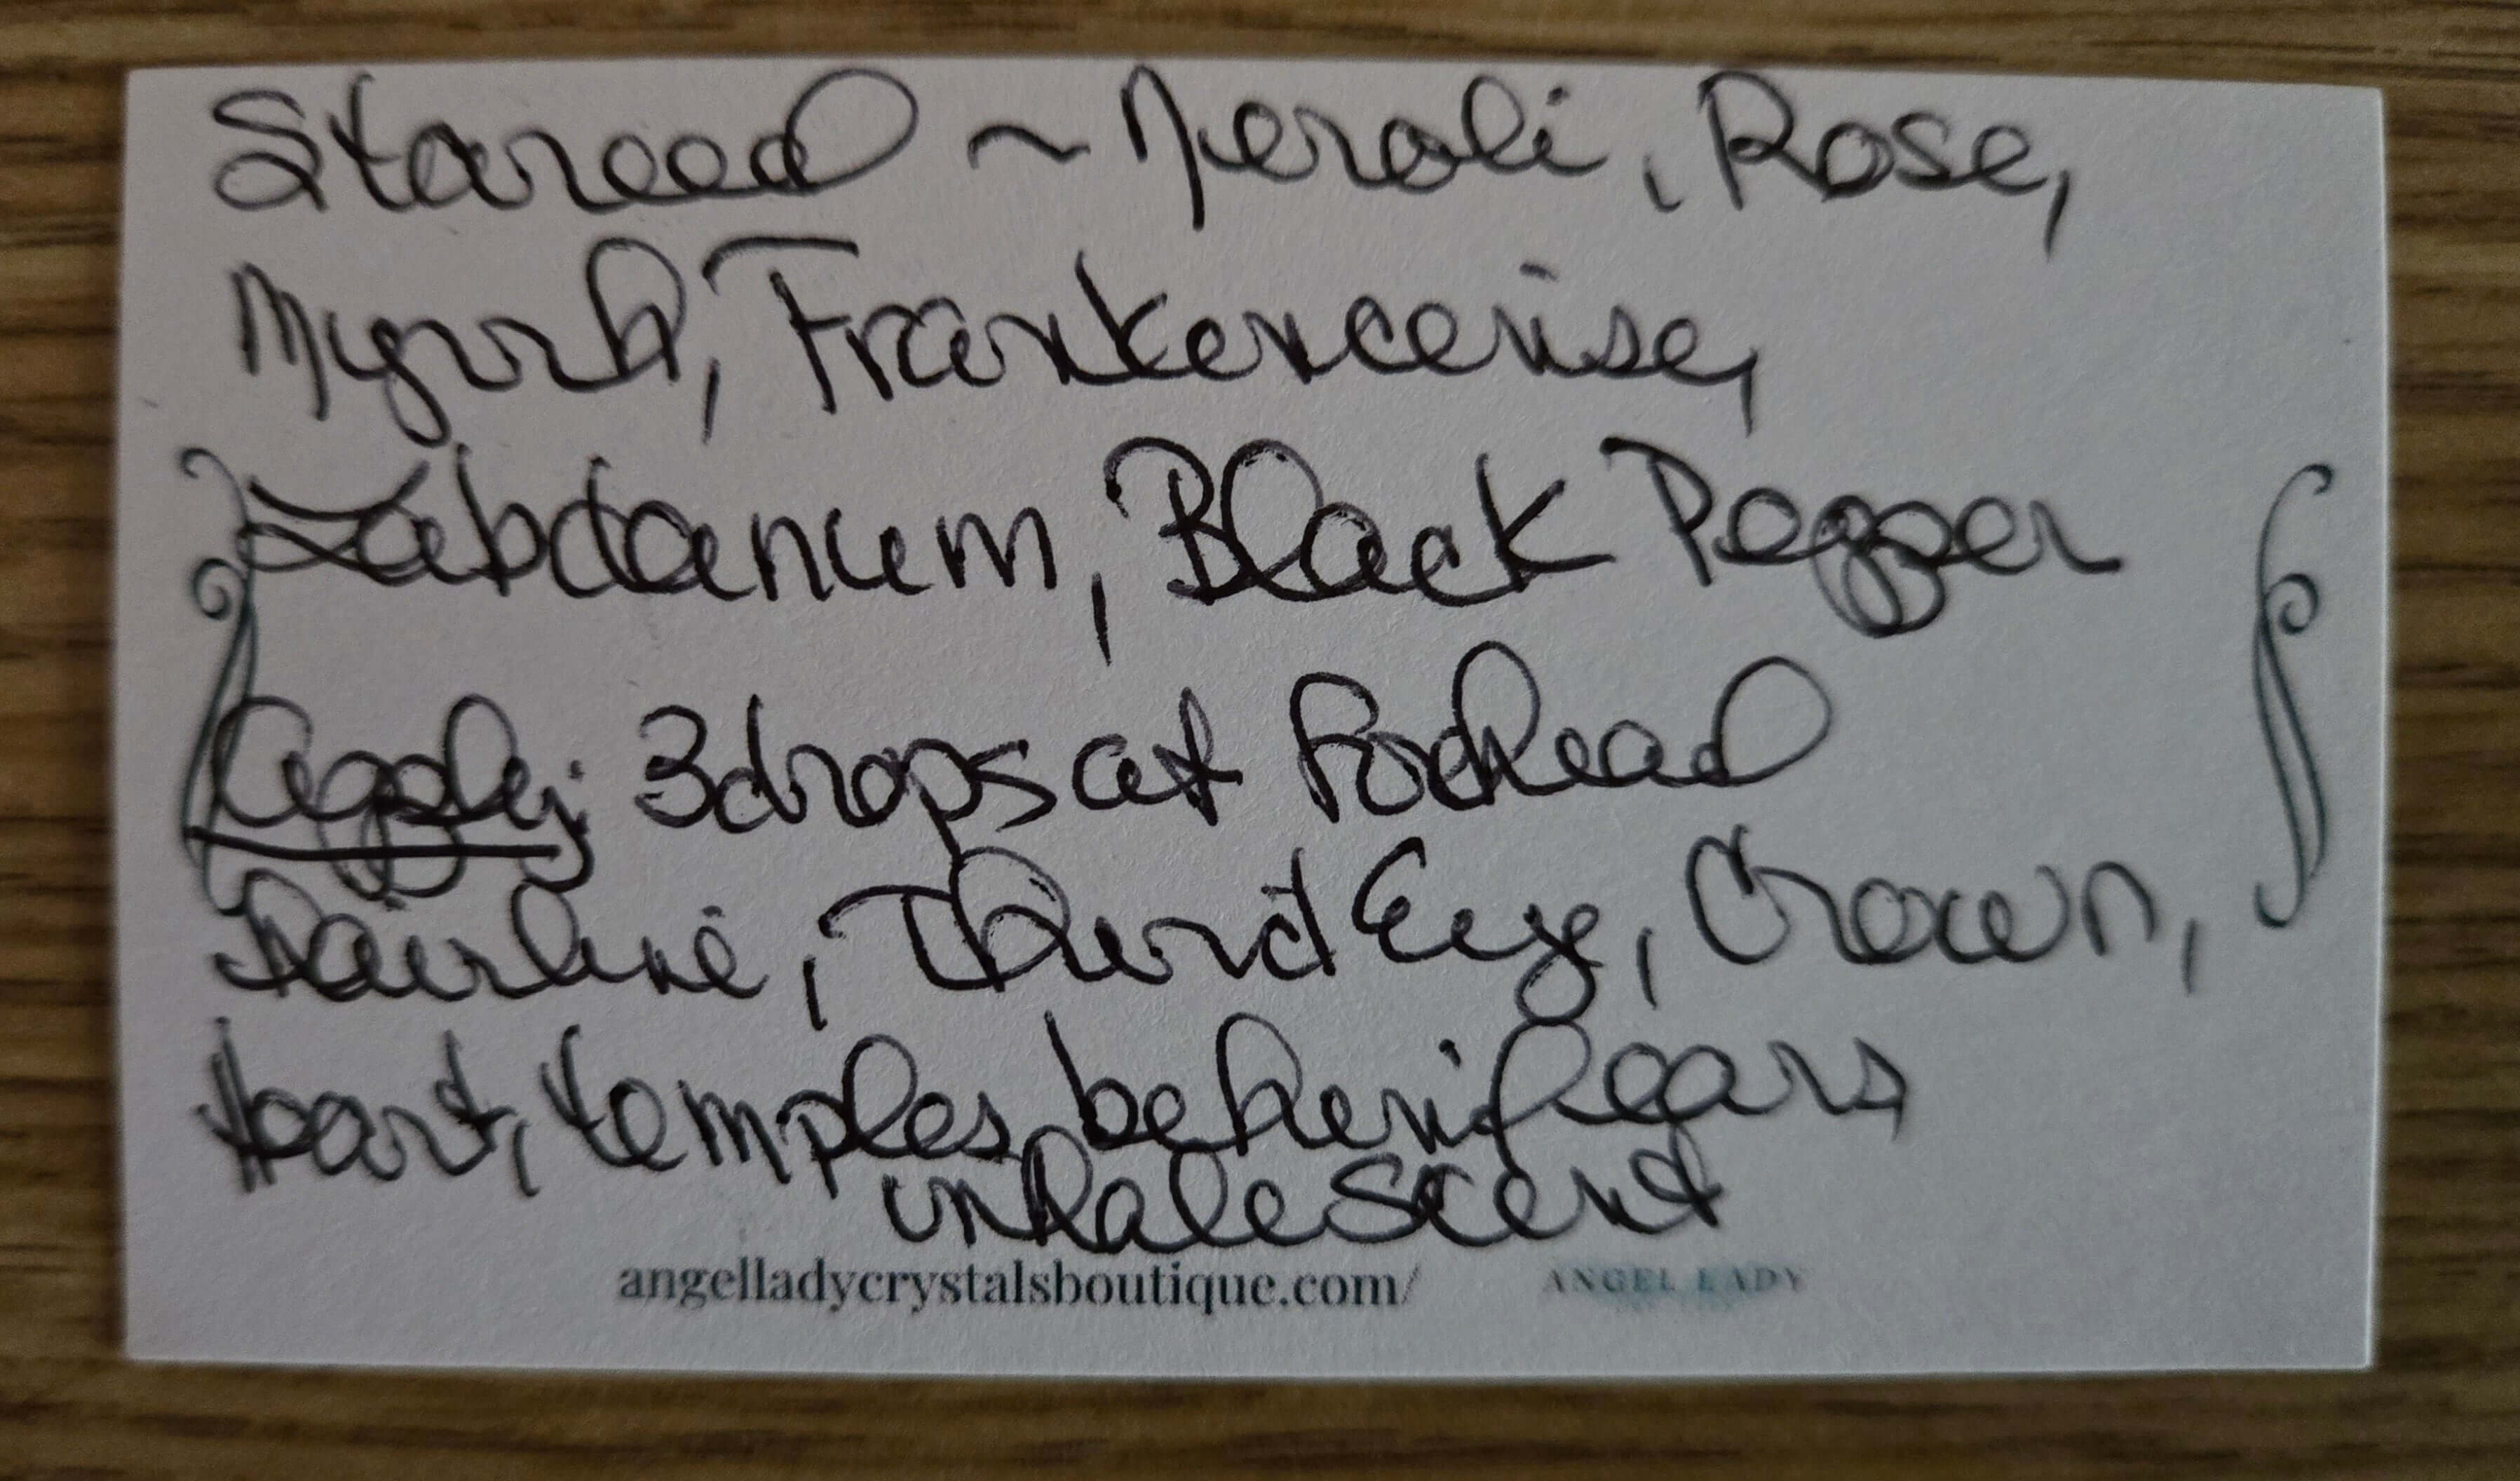 Starseed ~ Neroli, Rose,
Myrrh, Frankencense,
Labdanum, Black Pepper
Apply: 3 drops at Forhead
Hairline, Third Eye, Crown,
Heart, temples, behind ears
inhale scent
angelladycrystalsboutique.com/ ANGEL LADY